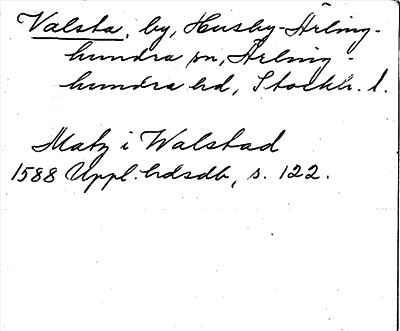 Valsta, by, Husby-Ärling-
hundra sn, Ärling-
hundra hd, Stockh. l.
Matz i Walstad
1588 Uppl. hdsdb, s. 122.